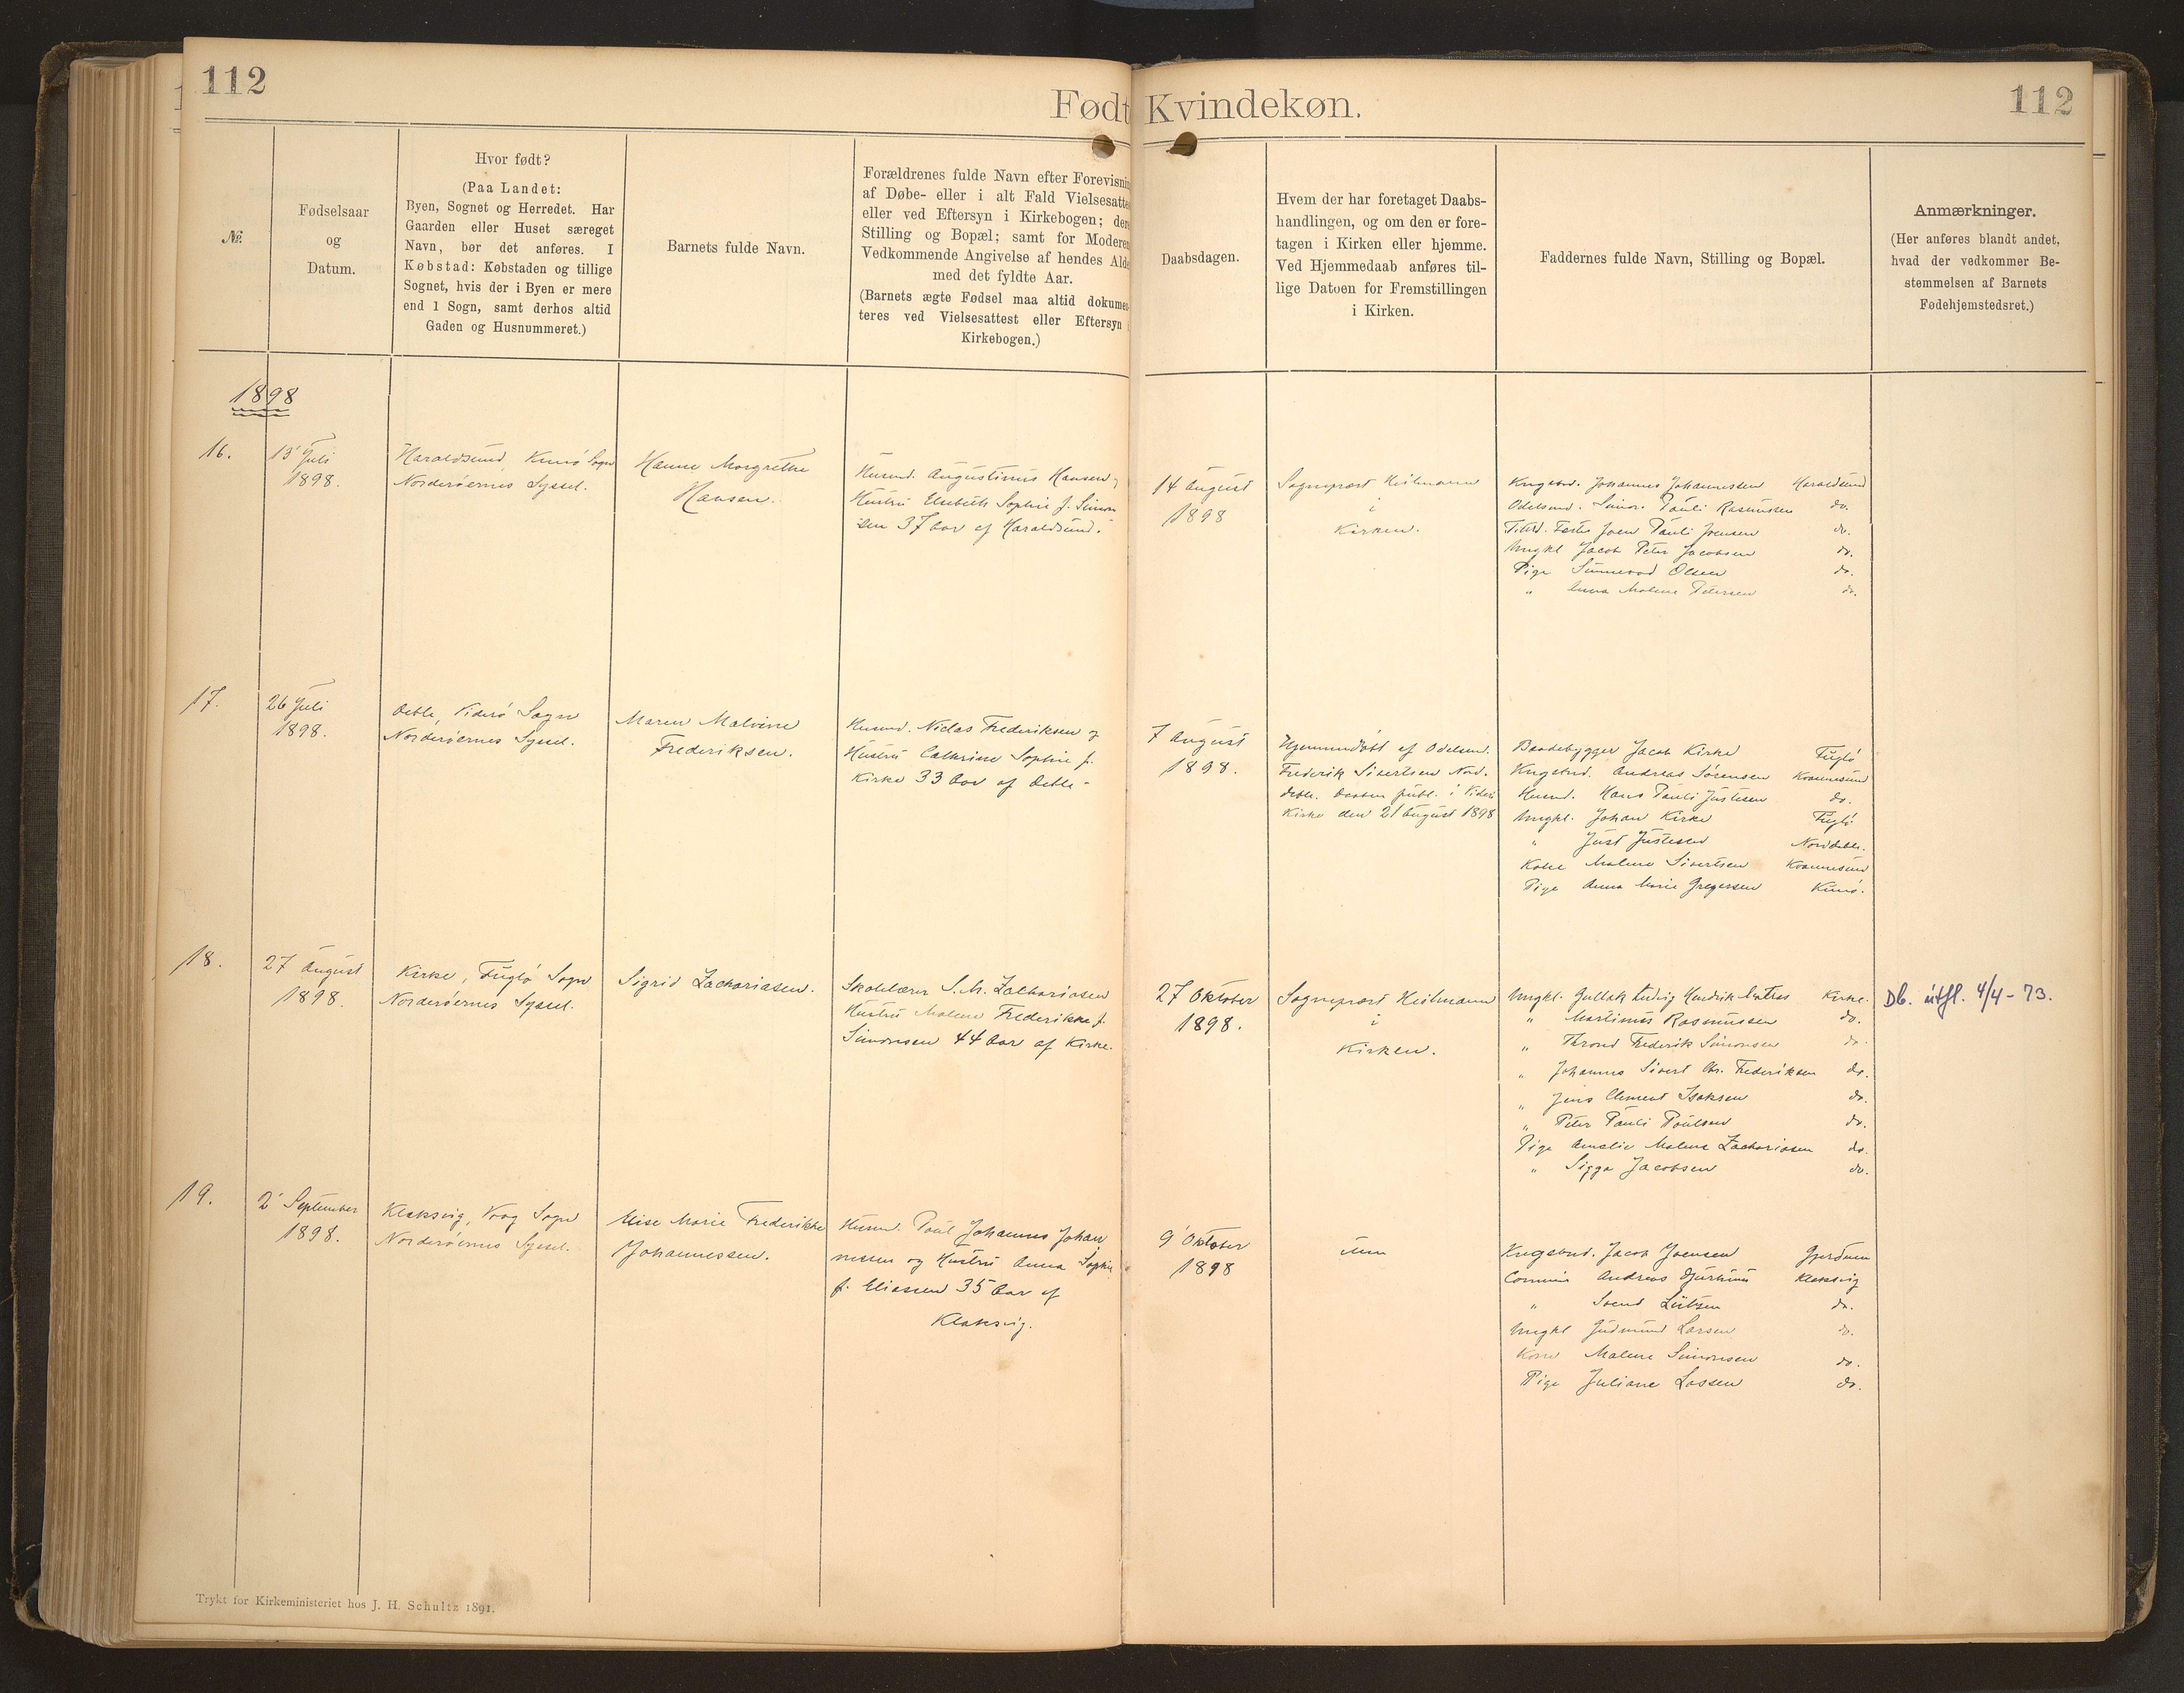 112
Født Kvindekøn.
112
№.
Fødselsaar
og
Datum.
Hvor født?
(Paa Landet:
Byen, Sognet og Herredet. Har
Gaarden eller Huset særeget
Navn, bør det anføres. I
Købstad: Købstaden og tillige
Sognet, hvis der i Byen er mere
end 1 Sogn, samt derhos altid
Gaden og Husnummeret.)
Barnets fulde Navn.
Forældrenes fulde Navn efter Forevisnin
af Døbe- eller i alt Fald Vielsesattes
eller ved Eftersyn i Kirkebogen; deres
Stilling og Bopæl; samt for Moderens
Vedkommende Angivelse af hendes Alde
med det fyldte Aar.
(Barnets ægte Fødsel maa altid dokumen-
teres ved Vielsesattest eller Eftersyn i
Kirkebogen.)
Daabsdagen.
Hvem der har foretaget Daabs-
handlingen, og om den er fore-
tagen i Kirken eller hjemme.
Ved Hjemmedaab anføres til-
lige Datoen for Fremstillingen
i Kirken.
Faddernes fulde Navn, Stilling og Bopæl.
Anmærkninger.
(Her anføres blandt andet,
hvad der vedkommer Be-
stemmelsen af Barnets
Fødehjemstedsret.)
1898
16.
13' Juli
1898.
Haraldsund, Kunø Sogn
Norderøernes Syssel.
Hanne Margrethe
Hansen.
Husmd. Augustinus Hansen,
Hustru Elsebeth Sophie f. Simon
sen 37 Aar af Haraldsund.
14 August
1898
Sognepræst Heilmann
i
Kirken.
Kngsbd. Johannes Johannessen Haraldsund
Odelsmd. Simon Pauli Rasmussen do.
Joen Pauli Joensen do.
Ungkl Jacob Peter Jacobsen do.
Pige Sunnevod Olsen do.
" Anna Malene Petersen do.
17.
26 Juli
1898.
Deble, Viderø Sogn
Norderøernes Syssel.
Maren Malvine
Frederiksen.
Husmd. Niclas Frederiksen og
Hustru Cathrine Sophie f.
Kirke 33 Aar af Deble -
7 August
1898.
Hjemmedøbt af Odelsmd.
Frederik Sivertsen Nord.
deble. Daaben publ. i Viderø
Kirke den 21 August 1898
Baadebygger Jacob Kirke Fuglø
Kngsbd. Andreas Sørensen Kvannesund
Husmd. Hans Pauli Justesen do.
Ungkl. Johan Kirke Fuglø
" Just Justesen Norddeble.
Kone Malene Sivertsen Kvannesund
Pige Anna Marie Gregersen Kunø.
18.
27 August
1898.
Kirke, Fuglø Sogn
Norderøernes Syssel.
Sigrid Zachariasen.
Skolelærer S. M. Zachariasen
Hustru Malene Frederikke f.
Simonsen 44 Aar af Kirke.
27 Oktober
1898.
Sognepræst Heilmann
i
Kirken.
Ungkl. Gullak Ludvig Hendrik Kirke.
" Martinus Rasmussen do.
" Thrond Frederik Simonsen do.
" Johannes Sivert Chr. Frederiksen do.
" Jens Clement Isaksen do.
" Peter Pauli Poulsen do.
Pige Amalie Malene Zachariasen do.
" Sigga Jacobsen do.
Db. útfl. 4/4 - 73.
19.
2' September
1898.
Klaksvig, Vaag Sogn
Norderøernes Syssel.
Elise Marie Frederikke
Johannessen.
Husm. Poul Johannes Johan
nessen og Hustru Anna Sophie
f. Eliassen 35 Aar af
Klaksvig.
9' Oktober
1898
item
Kngsbd. Jacob Joensen Gjerdum
Commis Andreas Djurhuus Klaksvig
" Svend Lützen do.
Ungkl Gudmund Larsen do.
Kone Malene Simonsen do.
Pige Juliane Lassen do.
Trykt for Kirkeministeriet hos J. H. Schultz 1891.